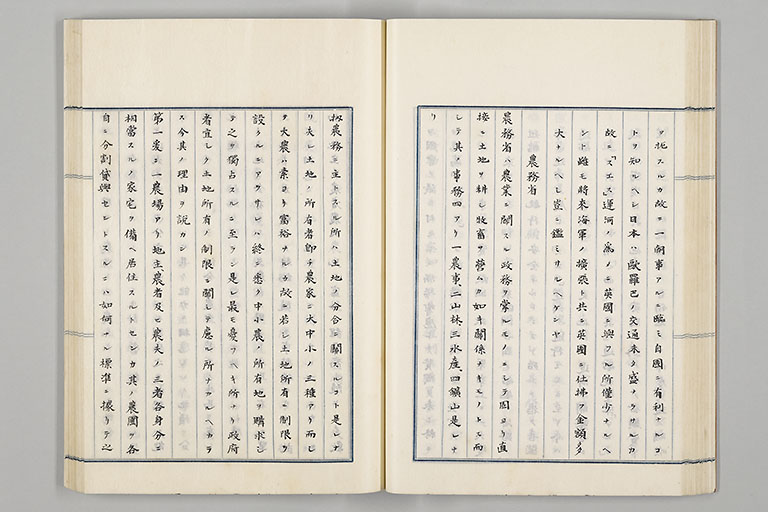 ヲ托スルカ故ニ一朝事アルニ臨ミ自國ニ有利ナルコ
トヲ知ルヘシ日本ハ歐羅巴ノ交通未タ盛ナラサルカ
故ニ「スエス」運河ノ為メニ英國ニ與フル所僅少ナルヘ
シト雖モ將來海軍ノ擴張ト共ニ英國ニ仕拂フ金額多
大ナルヘシ豈ニ鑑ミサルヘケンヤ
農務省
農務省ハ農業ニ關スル政務ヲ掌ルモノニシテ固ヨリ直
接ニ土地ヲ耕シ牧畜ヲ營ムカ如キ關係ナキモノトス而
シテ其ノ事務四アリ一農事、二山林、三水産、四鑛山是レナ
リ
農務ニ主トスル所ハ土地ノ分合ニ關スルコト是レナ
リ夫レ土地ノ所有者即チ農家ニ大中小ノ三種アリ而シ
テ大農ハ素ヨリ富裕ナルカ故ニ若シ土地所有ニ制限ヲ
設クルニアラサレハ終ニ悉ク中小農ノ所有地ヲ購求シ
テ之ヲ獨占スルニ至ラン是レ最モ憂フヘキ所ナリ政府
者宜シク土地所有ノ制限ニ關シテ應スル所ナカルヘカラ
ス今其ノ理由ヲ説カン
第一爰ニ一農場アリ地主、農者及ヒ農夫ノ三者各身分ニ
相當スルノ家宅ヲ備ヘ居住スルトセンカ其ノ農園ヲ各
自ニ分割貸與セントスルニハ如何ナル標準ニ據リテ之